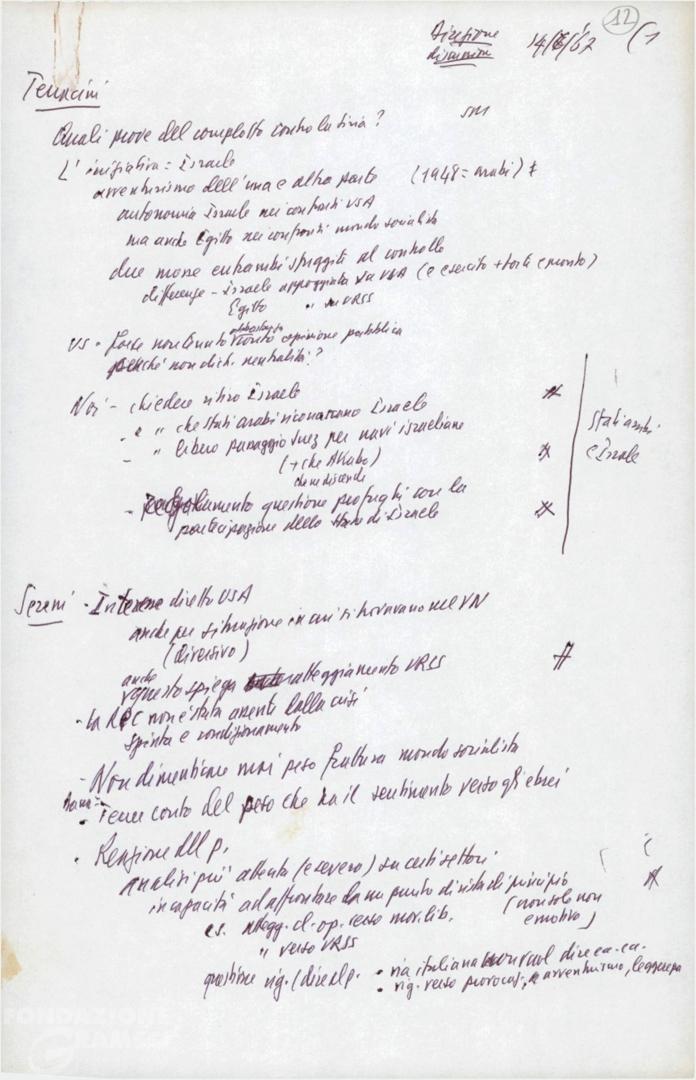 12
Direzione 14/6/67 (1
discussione
Terracini
sm
Quali prove del complotto contro la Siria?
L'iniziativa = Israele
avventurismo dell'una e altra parte (1948 = arabi) #
autonomia Israele nei confronti USA
ma anche Egitto nei confronti mondo socialista
due mosse entrambi sfuggiti al controllo
differenze - Israele appoggiato su USA (e esercito + forte e pronto)
Egitto " su URSS
US - forse non tenuto abbastanza conto opinione pubblica
perché non dich. neutralità?
Noi - chiedere ritiro Israele #
- " " che stati arabi riconoscano Israele
- " libero passaggio Suez per navi israeliane
(+ che Akaba) #
che ne discende
- regolamento questione profughi con la
partecipazione dello Stato di Israele #
Stati arabi
e Israele
Sereni - Interesse diretto USA
anche per situazione in cui si trovavano nel VN
(diversivo)
anche questo spiega atteggiamento URSS #
- La RPC non è stata assente dalla crisi
spinta e condizionamento
- Non dimenticare mai peso frattura mondo socialista
- Tener conto del peso che ha il sentimento verso gli ebrei
- Reazione del p.
analisi più attenta (e severa) su certi settori
incapacità ad affrontare da un punto di vista di principio #
(non solo non
emotivo)
es. attegg. cl. op. verso mov. lib.
" verso URSS
questione vig. - via italiana non vuol dire
- vig. verso provocaz., avventurismo, leggerezza
FONDAZIONE
GRAMSCI